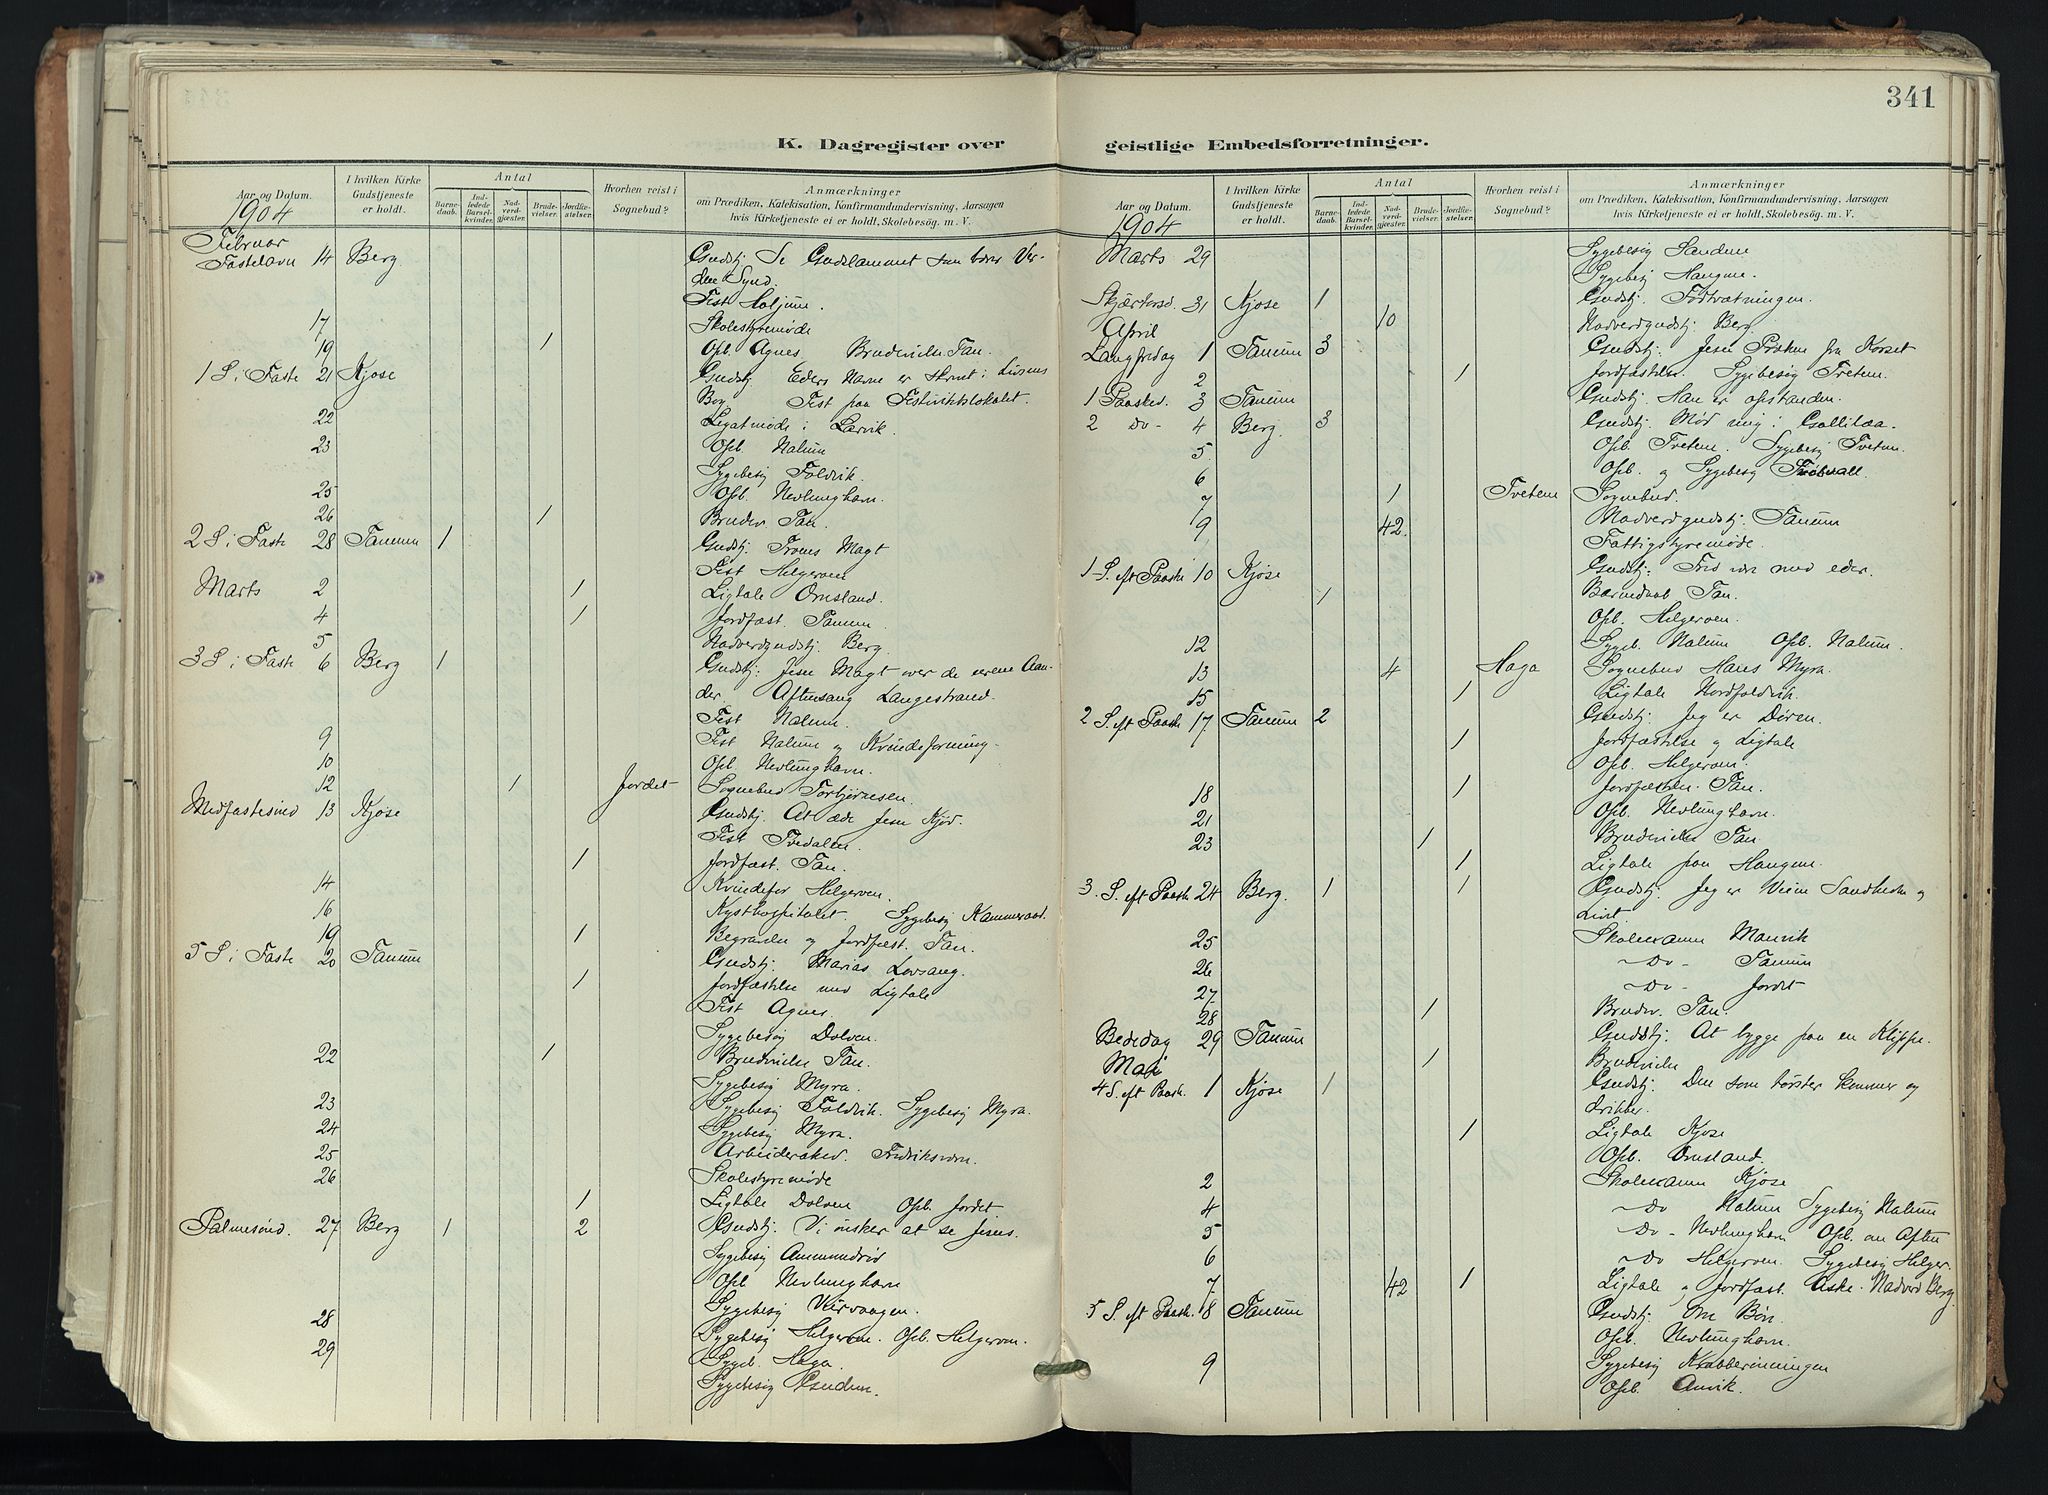 341
K. Dagregister over
geistlige Embedsforretninger.
Aar og Datum.
I hvilken Kirke Gudstjeneste er holdt.
Antal
Barne-daab.
Ind-ledede Barsel-kvinder.
Nad-verd-gjæster.
Brude-vielser.
Jordfæ-stelser.
Hvorhen reist i Sognebud?
Anmærkninger
om Prædiken, Katekisation, Konfirmandundervisning, Aarsagen
hvis Kirketjeneste ei er holdt, Skolebesøg. m. V.
1904
Februar
Fastelavn 14 Berg Gudstj. Se Gudslammet som bærer Ver-
dens Synd.
Fest Holjum.
17 Skolestyremøde
19 1 Opb. Agnes. Brudevielse Tan.
1 S. i Faste 21 Kjose Gudstj. Eders Navne er skrevet i Livsens
Bog. Fest paa Festivitetslokalet.
22 Ligatmøde i Larvik.
23 Opb. Nalum
Sygebesøg Foldvik.
25 Opb. Nevlunghavn.
26 1 Brudev. Tan.
2 S. i Faste 28 Tanum 1 Gudstj. Troens Magt
Fest Helgeroen
Marts 2 1 Ligtale Omsland.
4 1 Jordfæst. Tanum.
5 Nadverdgudstj. Berg.
3 S. i Faste 6 Berg 1 Gudstj. Jesu Magt over de urene Aan-
der. Aftensang Langestrand.
Fest Nalum.
9 Fest Nalum og Kvindeforening.
10 Opb. Nevlunghavn.
12 1 Jordet Sognebud Torbjørnsen.
Midfastesønd 13 Kjose Gudstj. At æde Jesu Kjød.
Fest Tvedalen.
1 Jordfæst. Tan.
14 Kvindefor Helgeroen.
16 Kysthospitalet. Sygebesøg
19 1 Begravelse og Jordfæst. Tan.
5 S. i Faste 20 Tanum Gudstj. Marias Lovsang.
1 Jordfæstelse med Ligtale
Fest Agnes.
Sygebesøg Dolven.
22 1 Brudevielse Tan.
Sygebesøg Myra.
23 Sygebesøg Foldvik. Sygebesøg Myra.
24 Sygebesøg Myra.
25 Arbeideraked. Fredriksværn.
26 Skolestyremøde
1 Ligtale Dolven Opb. Jordet
Palmesønd. 27 Berg 1 2 Gudstj. Vi ønsker at se Jesus.
Sygebesøg Ammundrød
Opb. Nevlunghavn
28 Sygebesøg Virvaagen.
Sygebesøg Helgeroen. Opb. Helgeroen.
29 Sygeb. Haga.
Sygebesøg
Aar og Datum.
I hvilken Kirke Gudstjeneste er holdt.
Antal
Barne-daab.
Ind-ledede Barsel-kvinder.
Nad-verd-gjæster.
Brude-vielser.
Jordfæ-stelser.
Hvorhen reist i Sognebud?
Anmærkninger
om Prædiken, Katekisation, Konfirmandundervisning, Aarsagen
hvis Kirketjeneste ei er holdt, Skolebesøg. m. V.
1904
Marts 29 Sygebesøg Sandene
Sygebesøg Haugene.
Skjærtorsd. 31 Kjose 1 Gudstj. Fodtvætningen.
10 Nadverdgudstj. Berg.
April
Langfredag 1 Tanum 3 Gudstj. Jesu Røst fra Korset
2 1 Jordfæstelse. Sygebesøg Tveten.
1 Paasked. 3 Tanum Gudstj. Han er opstanden.
2 Do - 4 Berg. 3 Gudstj. Mød mig i Gallilæa.
5 Opb. Tveten. Sygebesøg Tveten
6 Opb. og Sygebesøg
7 1 Tveten Sognebud.
9 42 Nadverdgudstj. Tanum
Fattigstyremøde.
1 S. eft Paaske 10 Kjose Gudstj. Fred være med eder.
1 Barnedaab Tan.
Opb. Helgeroen.
12 Sygeb. Nalum Opb. Nalum.
13 4 Haga Sognebud Hans Myra.
15 1 Ligtale Nordfoldvik.
2 S. eft Paaske 17 Tanum 2 Gudstj. Jeg er Døren.
1 Jordfæstelse og Ligtale
Opb. Helgeroen.
18 1 Jordfæstelse. Tan.
21 Opb. Nevlunghavn.
23 1 Brudevielse Tan
1 Ligtale paa Haugene.
3. S. eft Paaske 24 Berg. 1 1 Gudstj. Jeg er Veien Sandheden og
Livet.
25 Skolexamen Manvik
26 - Do - Tanum
27 - Do - Jordet
28 1 Brudev. Tan.
Bededag 29 Tanum Gudstj. At bygge paa en Klippe.
Mai 1 Brudevielse
4 S. eft Paask. 1 Kjose 1 Gudstj. Den som tørster kommer og
drikker.
1 Ligtale Kjose
Opb. Omsland.
2 Skolexamen Kjose
4 - Do Nalum Sygebesøg Nalum
5 - Do - Nevlunghavn Opb. om Aften
6 - Do Helgeroen. Sygebesøg Helger.
7 42 1 Ligtale og Jordfæst. Aske. Nadverd Berg.
5 S. eft Paask. 8 Tanum Gudstj. Om Bøn.
Opb. Nevlunghavn.
9 Sygebesøg Krabberinningen
Opb. Anvik.